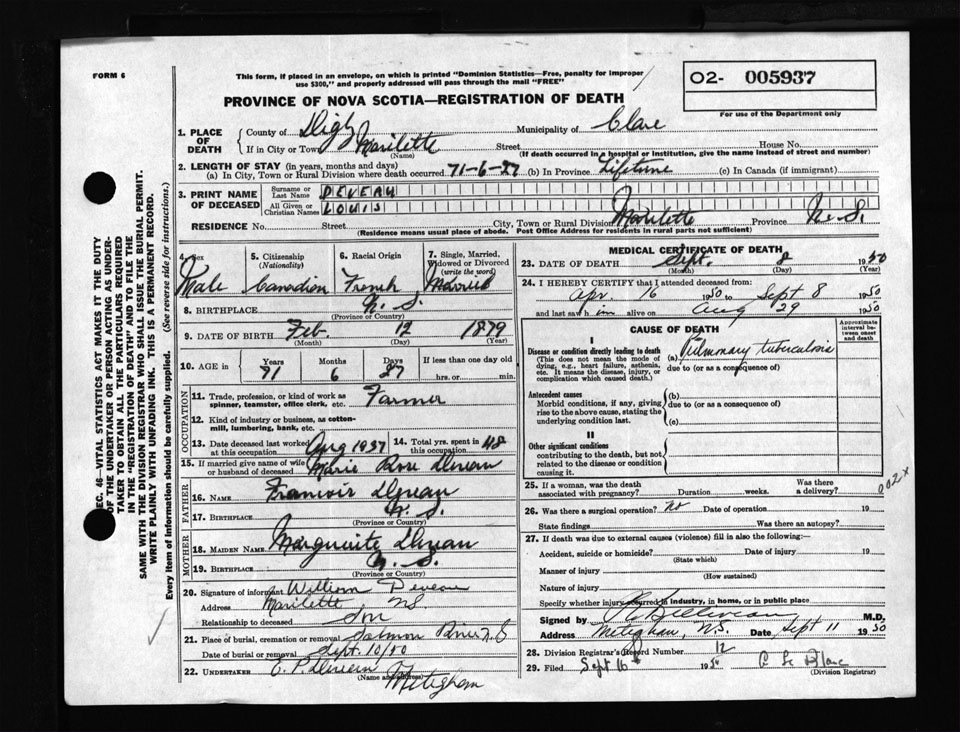 FORM 6
This form, if placed in an envelope, on which is printed "Dominion Statistics—Free, penalty for improper
use $300," and properly addressed will pass through the mail "FREE"
O2- 005937
For use of the Department only
PROVINCE OF NOVA SCOTIA—REGISTRATION OF DEATH
1. PLACE OF DEATH County of Digby Municipality of Clare
If in City or Town Mavilette Street House No.
(Name) (If death occurred in a hospital or institution, give the name instead of street and number)
2. LENGTH OF STAY (in years, months and days)
(a) In City, Town or Rural Division where death occurred 71-6-27 (b) In Province Lifetime (c) In Canada (if immigrant)
3. PRINT NAME OF DECEASED Surname or Last Name DEVEAU
All Given or Christian Names LOUIS
RESIDENCE No. Street City, Town or Rural Division Mavilette Province N.S.
(Residence means usual place of abode. Post Office Address for residents in rural parts not sufficient)
4. Sex 5. Citizenship (Nationality) 6. Racial Origin 7. Single, Married, Widowed or Divorced (write the word)
Male Canadian French Married
8. BIRTHPLACE N. S.
(Province or Country)
9. DATE OF BIRTH Feb. 12 1879
(Month) (Day) (Year)
10. AGE in Years Months Days If less than one day old
71 6 27 hrs. or min.
OCCUPATION
11. Trade, profession, or kind of work as spinner, teamster, office clerk, etc. Farmer
12. Kind of industry or business, as cotton-mill, lumbering, bank, etc.
13. Date deceased last worked at this occupation Aug 1937 14. Total yrs. spent in this occupation 48
15. If married give name of wife or husband of deceased Marie Rose Deveau
FATHER
16. NAME Deveau
17. BIRTHPLACE N. S.
(Province or Country)
MOTHER
18. MAIDEN NAME Marguerite Deveau
19. BIRTHPLACE N. S.
(Province or Country)
20. Signature of informant William Deveau
Address Mavilette NS.
Relationship to deceased Son
21. Place of burial, cremation or removal Salmon River N.S
Date of burial or removal Sept. 10/50
22. UNDERTAKER E. P. Deveau
(Name and address) Meteghan
MEDICAL CERTIFICATE OF DEATH
23. DATE OF DEATH Sept. 8 1950
(Month) (Day) (Year)
24. I HEREBY CERTIFY that I attended deceased from:
Apr. 16 1950 to Sept 8 1950
and last saw him alive on Aug 29 1950
CAUSE OF DEATH
Approximate interval between onset and death
I
Disease or condition directly leading to death (a) Pulmonary tuberculosis
(This does not mean the mode of dying, e.g., heart failure, asthenia, etc. It means the disease, injury, or complication which caused death.)
due to (or as a consequence of)
Antecedent causes (b)
Morbid conditions, if any, giving rise to the above cause, stating the underlying condition last.
due to (or as a consequence of)
(c)
II
Other significant conditions
contributing to the death, but not related to the disease or condition causing it.
25. If a woman, was the death associated with pregnancy? Duration weeks. Was there a delivery?
002X
26. Was there a surgical operation? no Date of operation 19
State findings Was there an autopsy?
27. If death was due to external causes (violence) fill in also the following:
Accident, suicide or homicide? Date of injury 19
(State which)
Manner of injury
(How sustained)
Nature of injury
Specify whether injury occurred in industry, in home, or in public place
Signed by M.D.
Address Meteghan, N.S. Date Sept 11 1950
28. Division Registrar's Record Number 12
29. Filed Sept 16 1950
(Division Registrar)
SEC. 46—VITAL STATISTICS ACT MAKES IT THE DUTY
OF THE UNDERTAKER OR PERSON ACTING AS UNDER-
TAKER TO OBTAIN ALL THE PARTICULARS REQUIRED
IN THE "REGISTRATION OF DEATH" AND TO FILE THE
SAME WITH THE DIVISION REGISTRAR WHO SHALL ISSUE THE BURIAL PERMIT.
WRITE PLAINLY WITH UNFADING INK. THIS IS A PERMANENT RECORD.
Every item of information should be carefully supplied. (See reverse side for instructions.)